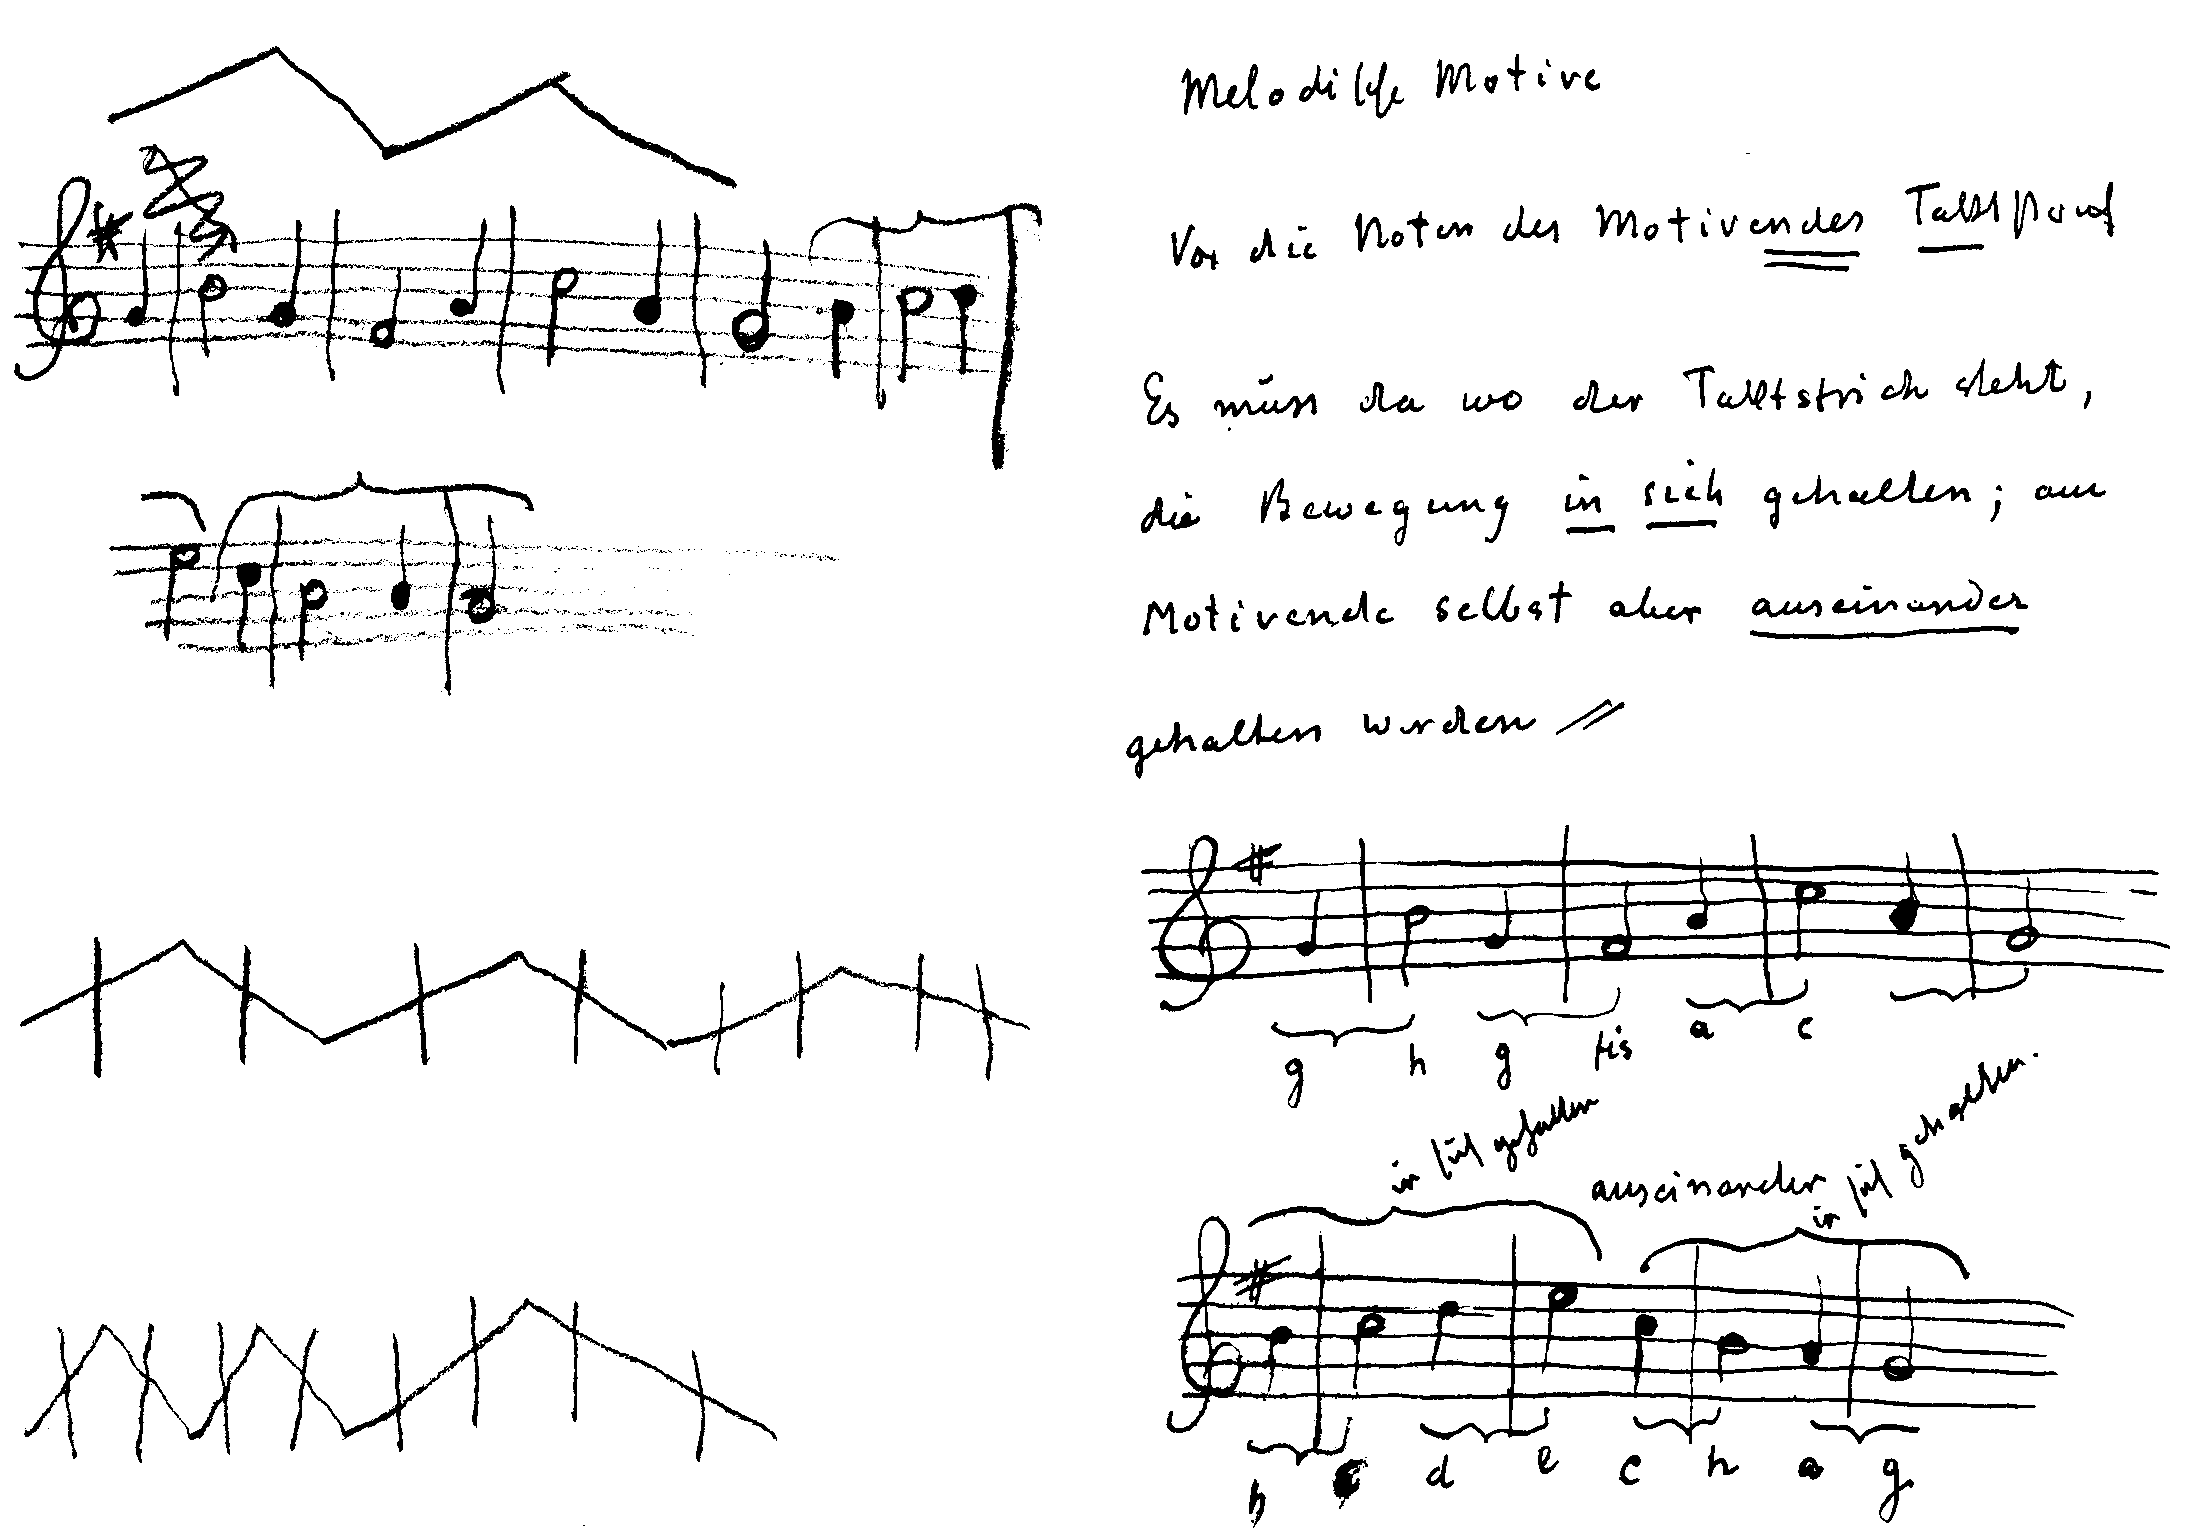 Melodische Motive
Vor die Noten des Motivendes
Es muss da wo der Taktstrich steht,
die Bewegung in sich gehalten; am
Motivende selbst aber auseinander
gehalten werden //
g h g fis a c
in sich gehalten
auseinander
in sich gehalten.
h c d e c h a g